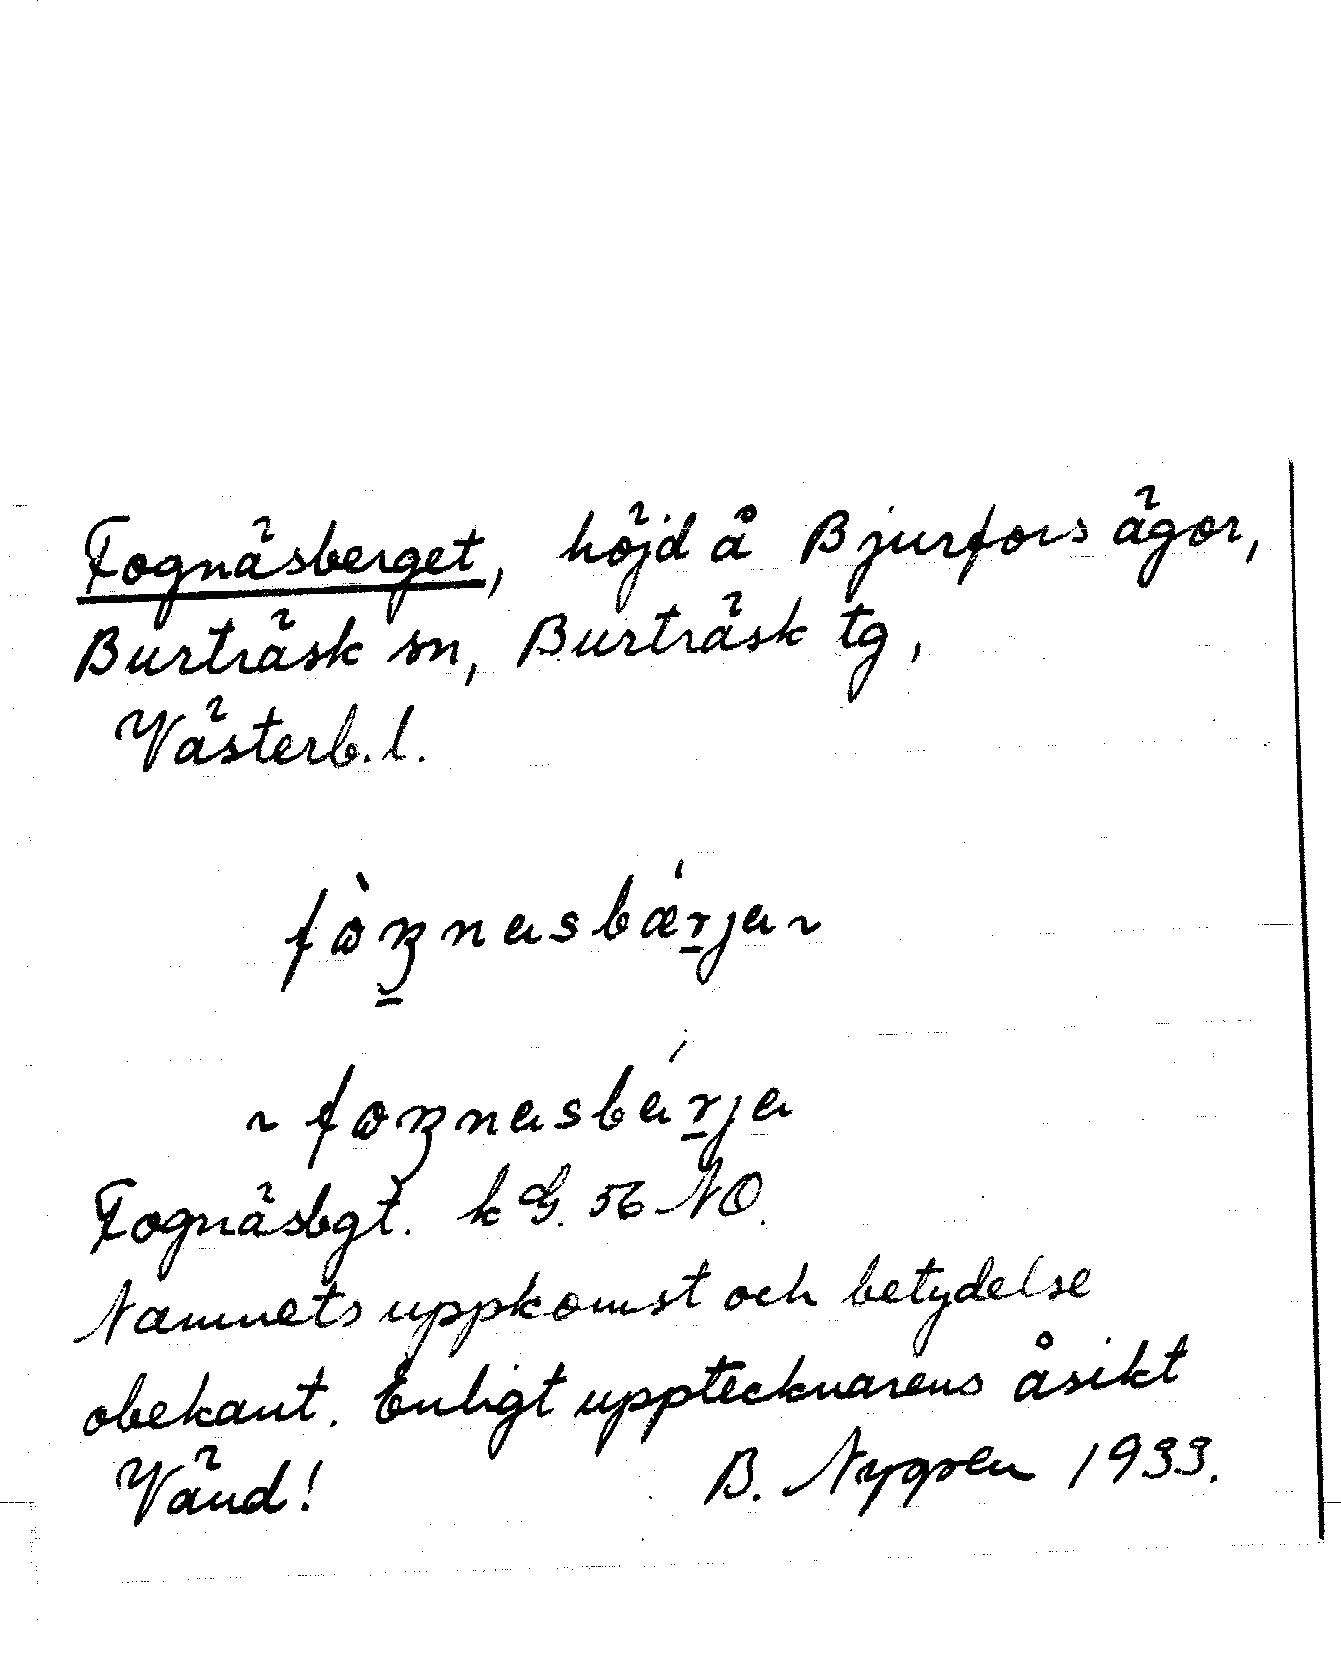 Fognäsberget, höjd å Bjurfors ägor,
Burträsk sn, Burträsk tg,
Västerb. l.
Fognäsbgt. k G. 56 NO.
Namnets uppkomst och betydelse
obekant. Enligt upptecknarens åsikt
Vänd! B. Nygren 1933.